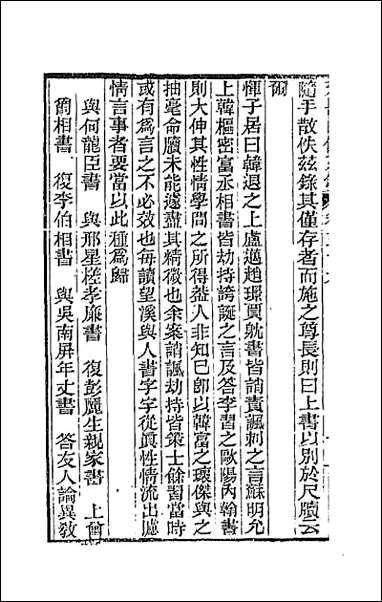 隨手散佚茲錄其僅存者而施之尊長則曰上書以別於尺牘云
爾
惲子居曰韓退之上盧邁趙璟賈躭書皆誚責諷刺之言蘇明允
上韓樞密富丞相書皆劫持誇誕之言及答李習之歐陽內翰書
則大伸其性情學問之所得葢人非知己卽以韓富之瓌傑與之
抽毫命牘未能遽盡其精微也余案誚諷劫持皆策士餘習當時
或有爲言之不必效也每讀望溪與人書字字從眞性情流出慮
情言事者要當以此種爲歸
與何龍臣書 與邢星槎孝廉書 復彭麗生親家書 上曾
爵相書 復李伯相書 與吳南屏年丈書 答友人論異敎